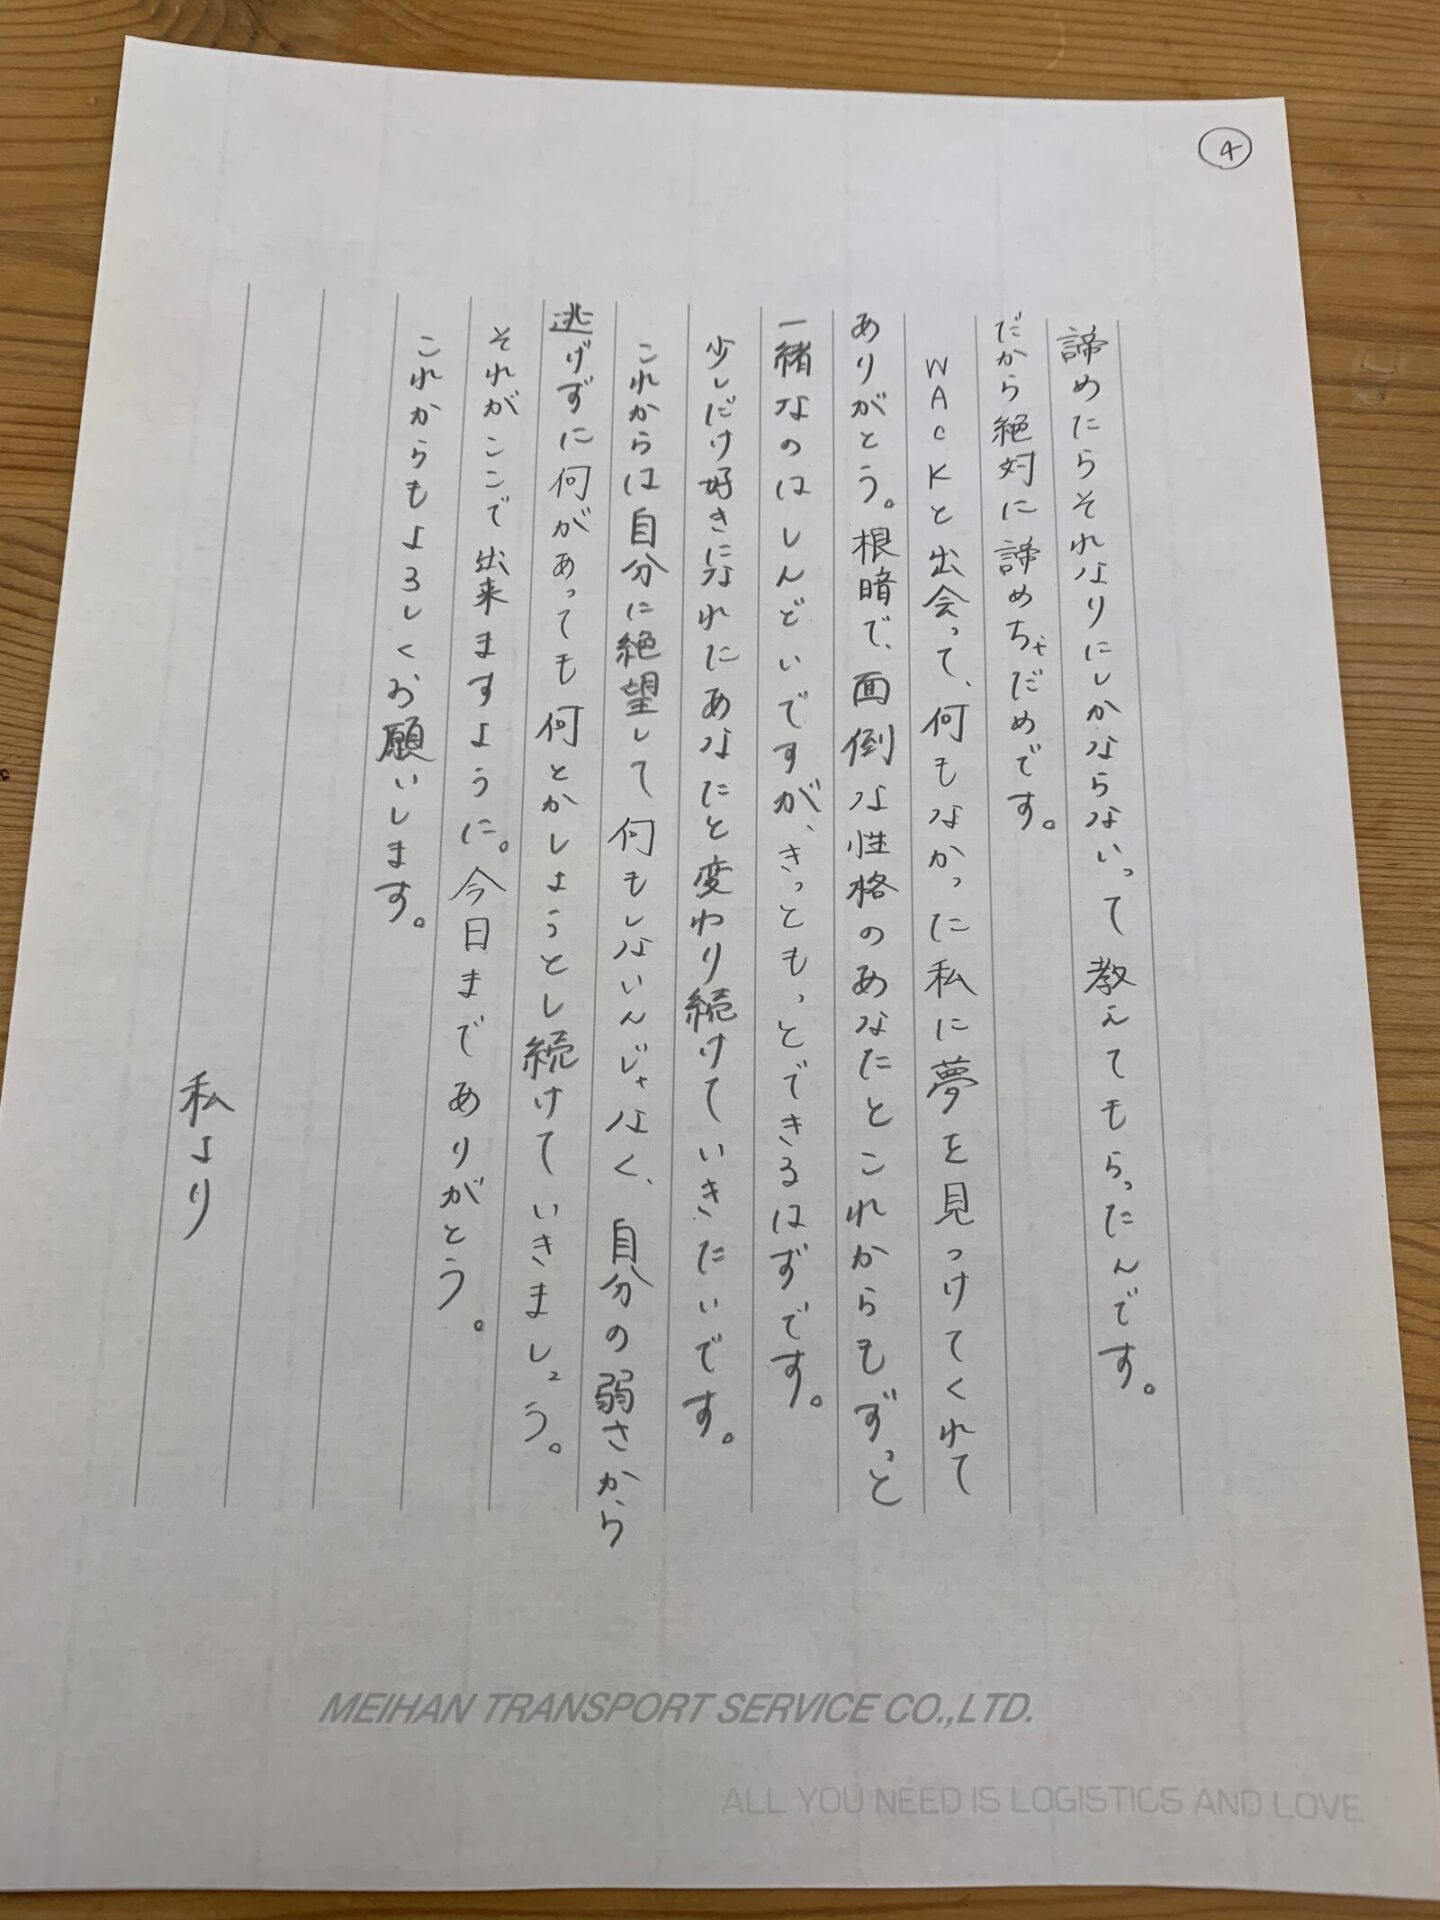 ④
諦めたらそれなりにしかならないって教えてもらったんです。
だから絶対に諦めちゃだめです。
WACKと出会って、何もなかった私に夢を見つけてくれて
ありがとう。根暗で、面倒な性格のあなたとこれからもずっと
一緒なのはしんどいですが、きっともっとできるはずです。
少しだけ好きになれたあなたと変わり続けていきたいです。
これからは自分に絶望して何もしないんじゃなく、自分の弱さから
逃げずに何があっても何とかしようとし続けていきましょう。
それがここで出来ますように。今日までありがとう。
これからもよろしくお願いします。
私より
MEIHAN TRANSPORT SERVICE CO.,LTD.
ALL YOU NEED IS LOGISTICS AND LOVE